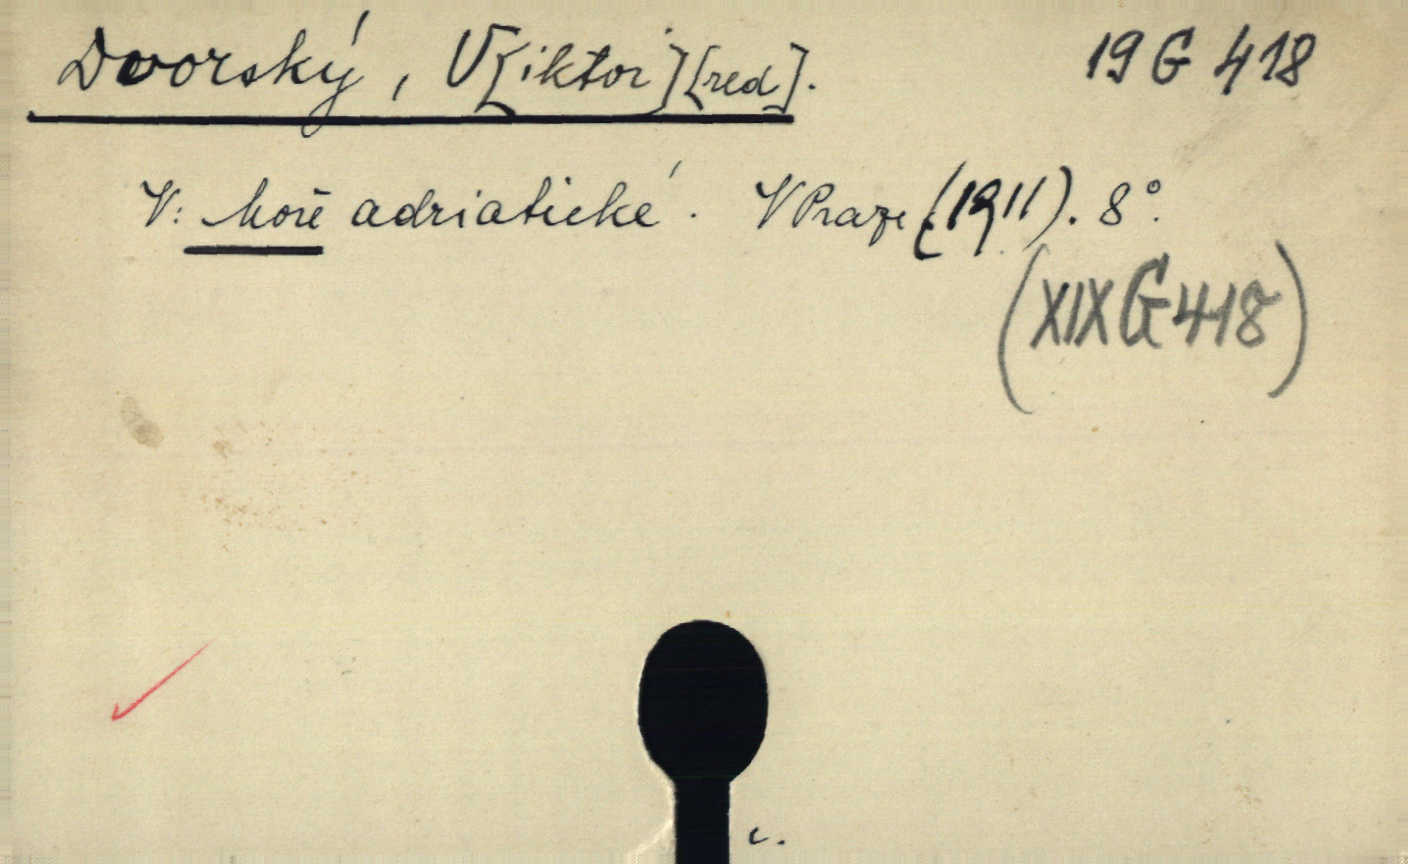 Dvorský, V[iktor][red]. 19 G 418
V: Moře adriatické. V Praze (1911). 8°.
(XIX G 418)
c.